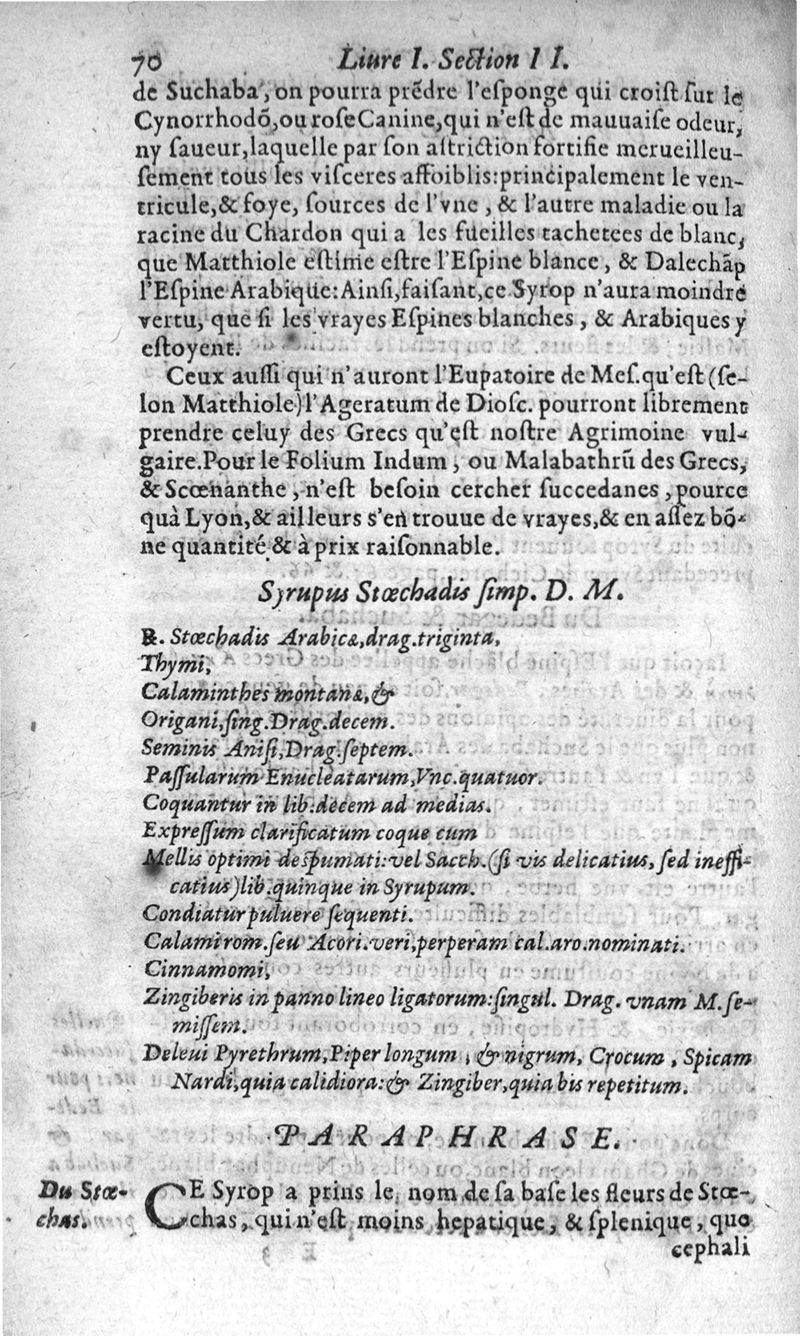 70 Liure I. Section II.
de Suchaba, on pourra prẽdre l'esponge qui croist sur le
Cynorrhodõ, ou rose Canine, qui n'est de mauuaise odeur,
ny saueur, laquelle par son astriction fortifie merueilleu-
sement tous les visceres affoiblis: principalement le ven-
tricule, & foye, sources de l'vne, & l'autre maladie ou la
racine du Chardon qui a les fueilles tachetees de blanc,
que Matthiole estime estre l'Espine blance, & Dalechãp
l'Espine Arabique: Ainsi, faisant, ce Syrop n'aura moindre
vertu, que si les vrayes Espines blanches, & Arabiques y
estoyent.
Ceux aussi qui n'auront l'Eupatoire de Mes. qu'est (se-
lon Matthiole) l'Ageratum de Diosc. pourront librement
prendre celuy des Grecs qu'est nostre Agrimoine vul-
gaire. Pour le Folium Indum, ou Malabathrũ des Grecs,
& Scœnanthe, n'est besoin cercher succedanes, pource
quà Lyon, & ailleurs s'en trouue de vrayes, & en assez bõ-
ne quantité & à prix raisonnable.
Syrupus Stœchadis simp. D. M.
℞. Stœchadis Arabicæ, drag. triginta,
Thymi,
Calaminthes montanæ, &
Origani, sing. Drag. decem.
Seminis Anisi, Drag. septem.
Passularum Enucleatarum, Vnc. quatuor.
Coquantur in lib. decem ad medias.
Expressum clarificatum coque cum
Mellis optimi despumati: vel Sacch. (si vis delicatius, sed ineffi-
catius) lib. quinque in Syrupum.
Condiatur puluere sequenti.
Calami rom. seu Acori. veri, perperam cal. aro. nominati.
Cinnamomi,
Zingiberis in panno lineo ligatorum: singul. Drag. vnam M. se-
missem.
Deleui Pyrethrum, Piper longum, & nigrum, Crocum, Spicam
Nardi, quia calidiora: & Zingiber, quia bis repetitum.
PARAPHRASE.
Du Stœ-
chas.
CE Syrop a prins le nom de sa base les fleurs de Stœ-
chas, qui n'est moins hepatique, & splenique, que
cephali